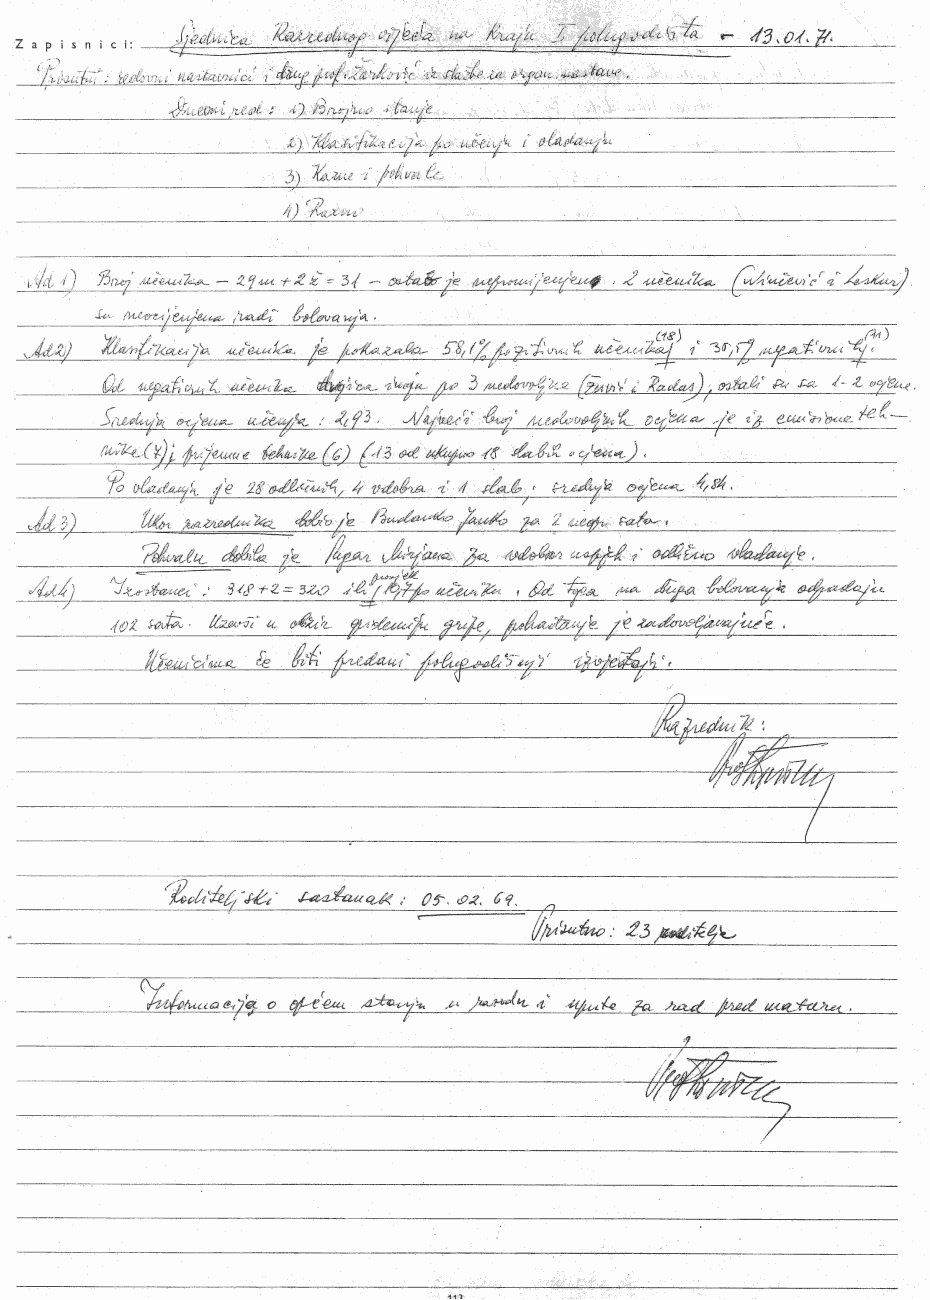 Zapisnici: Sjednica Razrednog vijeća na kraju I polugodišta - 13.01.71.
Prisutni: redovni nastavnici i drug prof. Žarković iz službe za organ. nastave.
Dnevni red: 1) Brojno stanje
2) Klasifikacija po učenju i vladanju
3) Kazne i pohvale
4) Razno
Ad 1) Broj učenika - 29m + 2ž = 31 - ostao je nepromijenjen. 2 učenika (Ninčević i Leskur)
su neocijenjena radi bolovanja.
Ad 2) Klasifikacija učenika je pokazala 58,1% pozitivnih učenika (18) i 35,5% negativnih (11).
Od negativnih učenika dvojica imaju po 3 nedovoljne ( i Radas), ostali su sa 1-2 ocjene.
Srednja ocjena učenja: 2,93. Najveći broj nedovoljnih ocjena je iz emisione teh-
nike (7) i prijemne tehnike (6) (13 od ukupno 18 slabih ocjena).
Po vladanju je 28 odličnih, 4 vdobra i 1 slab; srednja ocjena 4,84.
Ad 3) Ukor razrednika dobio je Budanko Janko za 2 neopr. sata.
Pohvalu dobila je Mirjana za vdobar uspjeh i odlično vladanje.
Ad 4) Izostanci: 318 + 2 = 320 ili prosjek 10,7 po učeniku. Od toga na duga bolovanja odpadaju
102 sata. Uzevši u obzir epidemiju gripe, pohađanje je zadovoljavajuće.
Učenicima će biti predani polugodišnji izvještaji.
Razrednik:
Roditeljski sastanak: 05.02.69.
Prisutno: 23 roditelja
Informacija o općem stanju u razredu i upute za rad pred maturu.
113